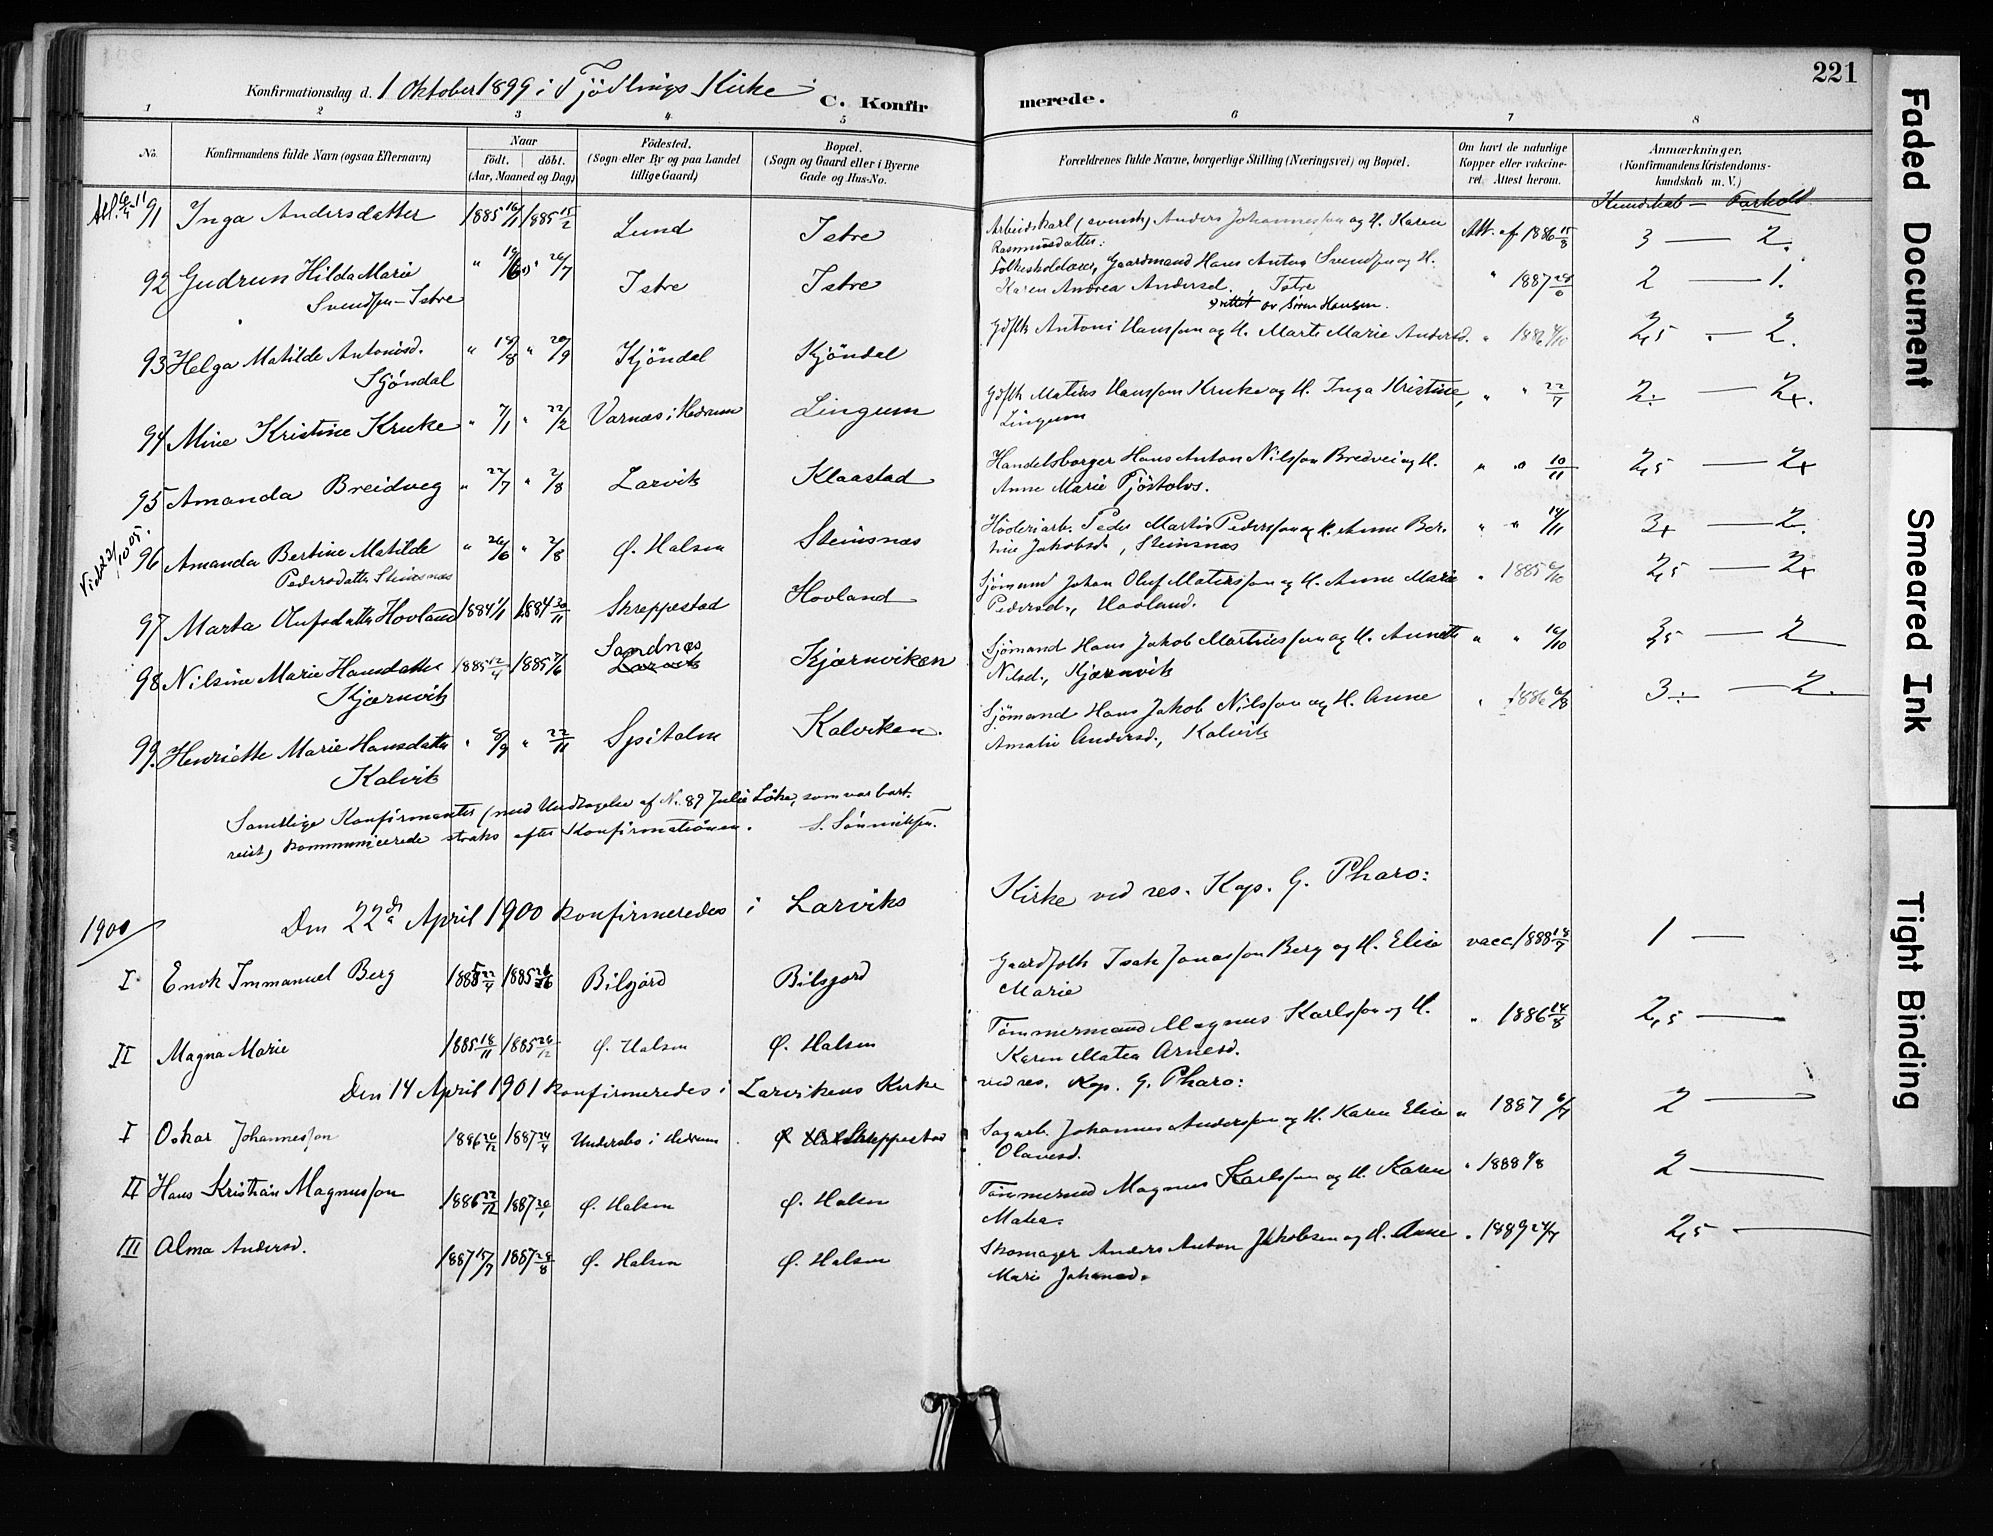 221
Konfirmationsdag d. 1 Oktober 1899 i Tjödlings Kirke
C. Konfirmerede.
1 2 3 4. 5 6 7 8
No. Konfirmandens fulde Navn (ogsaa Efternavn) Naar födt. döbt. (Aar, Maaned og Dag.) Födested. (Sogn eller By og paa Landet tillige Gaard) Bopæl. (Sogn og Gaard eller i Byerne Gade og Hus-No. Forældrenes fulde Navne, borgerlige Stilling (Næringsvei) og Bopæl. Om havt de naturlige Kopper eller vakcineret. Attest herom. Anmærkninger. (Konfirmandens Kristendomskundskab m. V.)
Kundskab — Forhold
91 Inga Andersdatter 1885 1885 15/2 Lund Istre Arbeidskarl (svensk) Anders Johannesson og H. Karen Att. af 1886 15/8 3 — 2.
Rasmusdatter:
92 Gudrun Hilda Marie " " 26/7 Istre Istre Folkeskolelærer, Gaardmand Hans Anton Svendsen og H. " 1887 2 — 1.
Svendsen-Istre Karen Andrea Andersd., Istre
rettet av Sören Hansen.
93 Helga Matilde Antonisd. " 18/8 " 20/9 Kjöndal Kjöndal Gdflk Antoni Hanssen og H. Marte Marie Andersd. " 1886 2,5 — 2.
Kjöndal
94 Mine Kristine Kruke " 7/1 " 22/2 Varnæs i Hedrum Lingum Gdflk Matias Hanssen Kruke og H. Inga Kristine, " " 22/7 2 — 2
Lingum
95 Amanda Breidveg " 22/7 " 2/8 Larvik Klaastad Handelsborger Hans Anton Nilssen Bredvei og H. " " 10/11 2,5 — 2
Anne Marie Tjöstolvs.
96 Amanda Bertine Matilde " 26/6 " 2/8 Ø. Halsen Steinsnæs Peder Martin Pederssen og H. Anne Ber- " " 14/11 3 — 2.
Pedersdatter Steinsnæs tine Jakobsd., Steinsnæs
97 Marta Olufsdatter Hovland 1884 1/11 1884 Skreppestad Hovland Sjömand Johan Oluf Matissen og H. Anne Marie " 1885 2,5 — 2
Pedersd., Hovland.
98 Nilsine Marie Hansdatter 1885 12/4 1885 7/6 Sandnæs Kjærnviken Sjömand Hans Jakob Martinssen og H. Annette " " 16/10 — 2
Larvik
Kjærnvik Nilsd., Kjærnvik
99. Henriette Marie Hansdatter " 8/9 " 22/11 Spitalen Kalviken. Sjömand Hans Jakob Nilssen og H. Anne " 1886 6/8 3 — 2.
Kalvik Amalie Andersd., Kalvik
Samtlige Konfirmanter (med Undtagelse af N. 89 Julie Löke, som var bort-
reist) kommunicerede straks efter Konfirmationen.
1900
Den 22de April 1900 konfirmeredes i Larviks Kirke ved res. Kap. G. Pharo:
I. Enok Immanuel Berg 1885 22/4 1885 Bilsjord Bilsjord Gaardfolk Isak Jonassen Berg og H. Elise vacc. 1888 18/7 1 —
Marie
II Magna Marie 1885 18/11 1885 26/12 Ø. Halsen Ø. Halsen Tømmermand Magnus Karlssen og H. " 1886 14/8 2,5 —
Karen Matea Arnesd.
Den 14 April 1901 konfirmeredes i Larvikens Kirke ved res. Kap. G. Pharo:
I Oskar Johannessen 1886 26/12 1887 24/4 Undersbo i Hedrum Skreppestad Sagarb. Johannes Anderssen og H. Karen Elise " 1887 6/7 2 —
Olavesd.
II Hans Kristian Magnussen 1886 22/12 1887 Ø. Halsen Ø. Halsen Tømmermd Magnus Karlssen og H. Karen " 1888 2 —
Matea.
III Alma Andersd. 1887 15/7 1887 28/8 Ø. Halsen Ø. Halsen Skomager Anders Anton Jakobsen og H. Anne " 1889 24/7 2,5 —
Marie Johansd.
Faded Document
Smeared Ink
Tight Binding